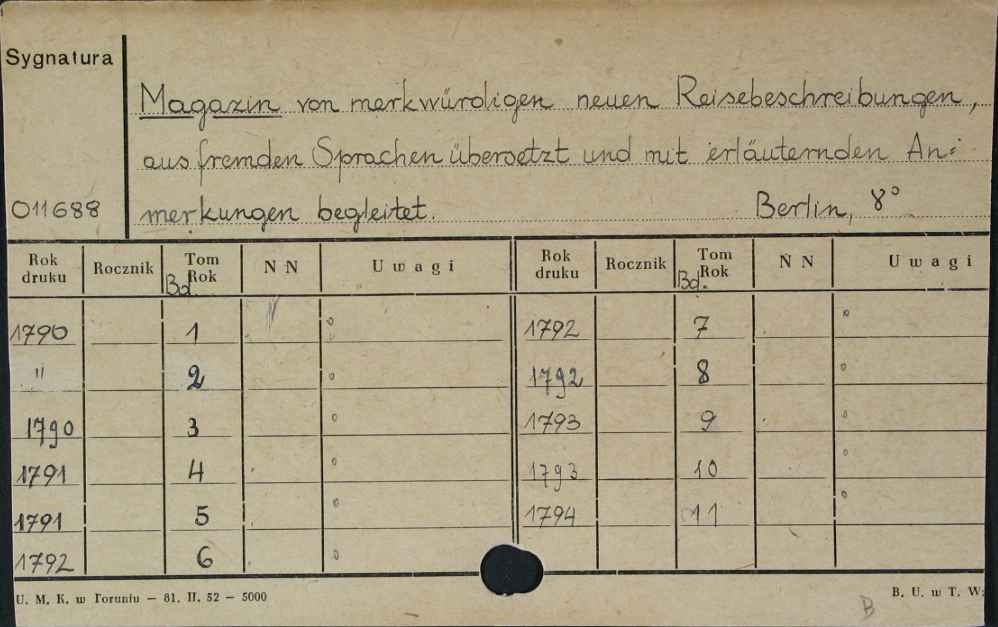 Sygnatura
Magazin von merkwürdigen neuen Reisebeschreibungen,
aus fremden Sprachen übersetzt und mit erläuternden An=
011688 merkungen begleitet. Berlin, 8°
Rok druku Rocznik Tom Bd. Rok N N Uwagi Rok druku Rocznik Tom Bd. Rok N N Uwagi
1790 1 1792 7
" 2 1792 8
1790 3 1793 9
1791 4 1793 10
1791 5 1794 11
1792 6
U. M. K. w Toruniu — 81. II. 52 — 5000 B. U. w T. W:
B